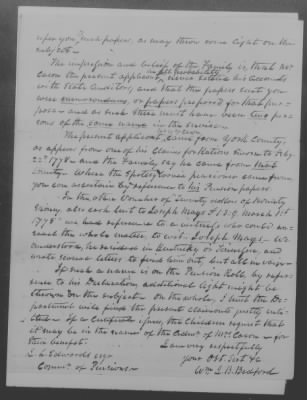 upon you such papers, as may throw some light on the
subject —
The impression and belief of the Family is, that Mr
Cason the present applicant in all probability never settled his accounts
with State Auditors, and that the papers sent you
were memorandums, or papers prepared for that pur-
pose — and as such there must have been two per-
sons of the same name in the service —
The present applicant came from York County,
as appears from one of his Claims for Rations drawn to Feby
22nd 1778 — and the Family say he came from that
county — Where the Spotsyl Cason pensioner came from
you can ascertain by reference to his Pension papers.
In the other Voucher of Twenty dollars of Ninety
money also each sent to Joseph Mays 13. 9. March 1st
1778 — we had reference to a witness who could un-
ravel the whole matter, to wit: Joseph Mays — We
understood, he resided in Kentucky or Tennessee and
wrote several letters to find him out, but all in vain —
If such a name is on the Pension Roll, by refer-
ence to his Declaration, additional light might be
thrown on the subject — On the whole, I think the De-
positions will find the present claimant pretty enti-
tled — If a Certificate issues, the Children request that
it may be in the name of the Admr. of Mr. Cason — for
their benefit.
I am very respectfully
J. L. Edwards esqr your Obt. Sert. &c
Commr. of Pensions — Wm G. B. Bedford